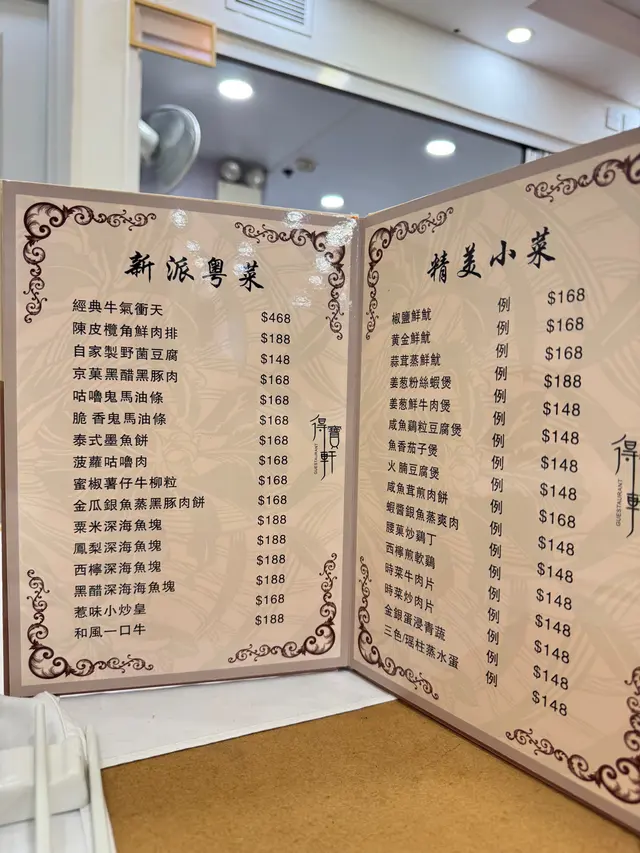 新派粵菜
經典牛氣衝天 $468
陳皮欖角鮮肉排 $188
自家製野菌豆腐 $148
京菓黑醋黑豚肉 $168
咕嚕鬼馬油條 $168
脆 香鬼馬油條 $168
泰式墨魚餅 $168
菠蘿咕嚕肉 $168
蜜椒薯仔牛柳粒 $168
金瓜銀魚蒸黑豚肉餅 $168
粟米深海魚塊 $188
鳳梨深海魚塊 $188
西檸深海魚塊 $188
黑醋深海海魚塊 $188
惹味小炒皇 $168
和風一口牛 $188
得寶軒
GUESTAURANT
精美小菜
椒鹽鮮魷 例 $168
黃金鮮魷 例 $168
蒜茸蒸鮮魷 例 $168
姜葱粉絲蝦煲 例 $188
姜葱鮮牛肉煲 例 $148
咸魚鷄粒豆腐煲 例 $148
魚香茄子煲 例 $148
火腩豆腐煲 例 $148
咸魚茸煎肉餅 例 $168
蝦醬銀魚蒸爽肉 例 $148
腰菓炒鷄丁 例 $148
西檸煎軟鷄 例 $148
時菜牛肉片 例 $148
時菜炒肉片 例 $148
金銀蛋浸青蔬 例 $148
三色/瑤柱蒸水蛋 例 $148
得軒
GUESTAURANT